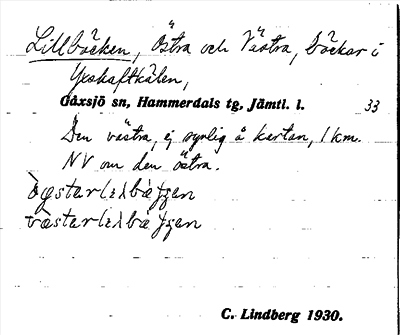 Lillbäcken, Östra och Västra, bäckar i
Yxskaftkälen,
Gåxsjö sn, Hammerdals tg, Jämtl. l. 33
Den västra, ej synlig å kartan, 1 km.
NV om den östra.
C. Lindberg 1930.